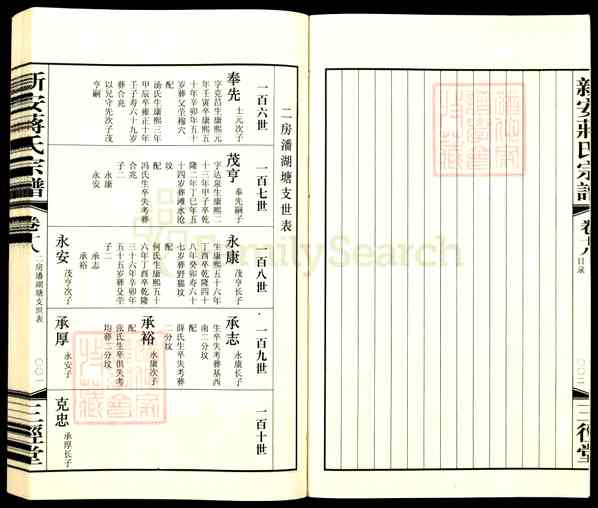 新安蔣氏宗譜
卷十八
目录
三徑堂
二房潘湖塘支世表
一百六世
奉先
士元次子
字克昌生康熙元
年壬寅卒康熙五
十年辛卯年五十
岁葬父茔穆穴
配
汤氏生康熙十年
甲辰卒雍正十年
壬子寿六十九岁
葬合兆
以兄守先次子茂
亨嗣
一百七世
茂亨
奉先嗣子
字达泉生康熙二
十三年甲子卒乾
隆二年丁巳年五
十四岁葬滩水沧
坟
配
冯氏生卒失考葬
合兆
子二
永康
永安
一百八世
永康
茂亨长子
生康熙五十六年
丁酉卒乾隆四十
八年癸卯寿六十
七岁葬野猫坟
配
何氏生康熙五十
六年丁酉卒乾隆
三十六年辛卯年
五十五岁葬父茔
子二
承志
承裕
永安
茂亨次子
一百九世
承志
永康长子
生卒失考葬基西
南二分坟
配
薛氏生卒失考葬
二分坟
承裕
永康次子
配
张氏生卒俱失考
均葬二分坟
承厚
永安子
一百十世
克忠
承厚长子
新安蔣氏宗譜
卷十八
二房潘湖塘支世表
〇〇一
三徑堂
FamilySearch